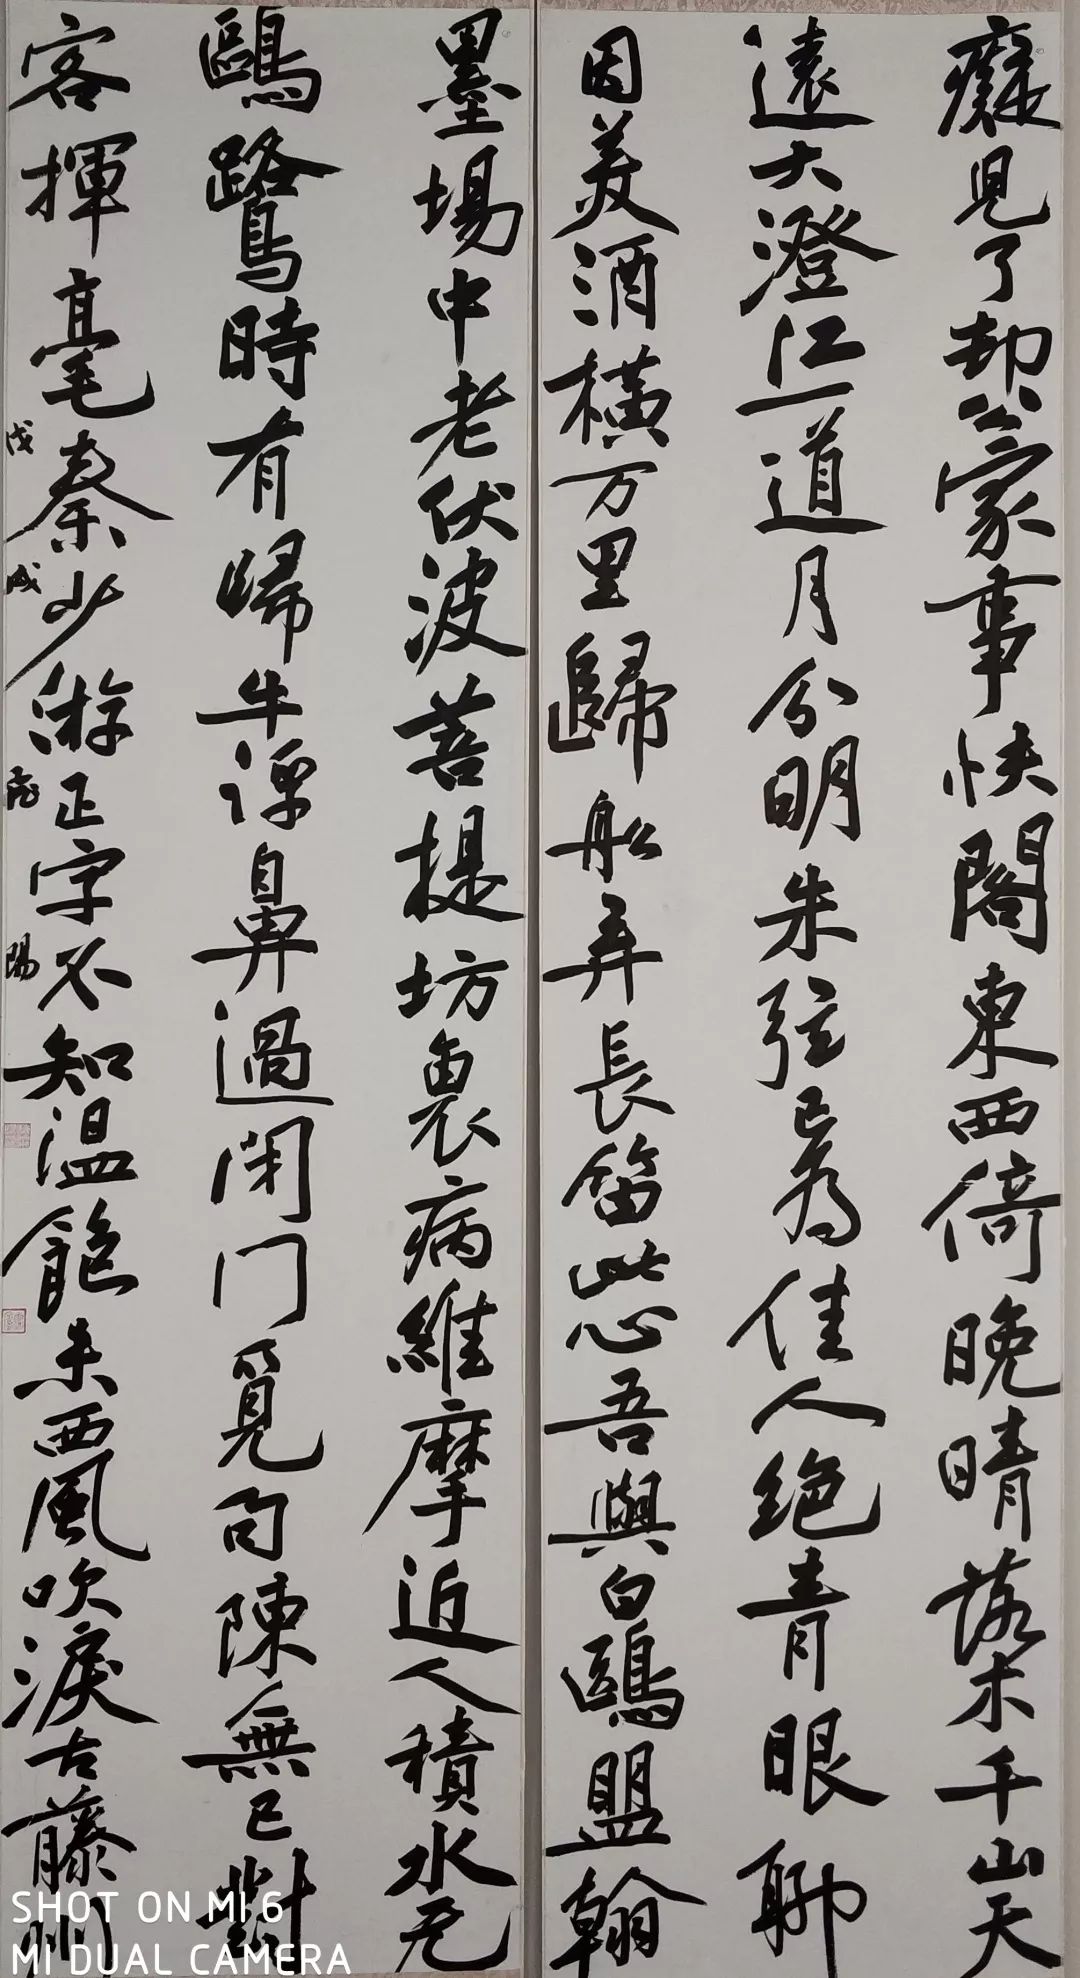 癡兒了却公家事快閣東西倚晚晴落木千山天
遠大澄江一道月分明朱弦已為佳人絕青眼聊
因美酒橫万里歸船弄長笛此心吾與白鷗盟翰
墨場中老伏波菩提坊裏病維摩近人積水无
鷗鷺時有歸牛浮鼻過閉门覓句陳無己對
客揮毫秦少游正字不知溫飽未西風吹淚古藤州
戊戌
SHOT ON MI 6
MI DUAL CAMERA